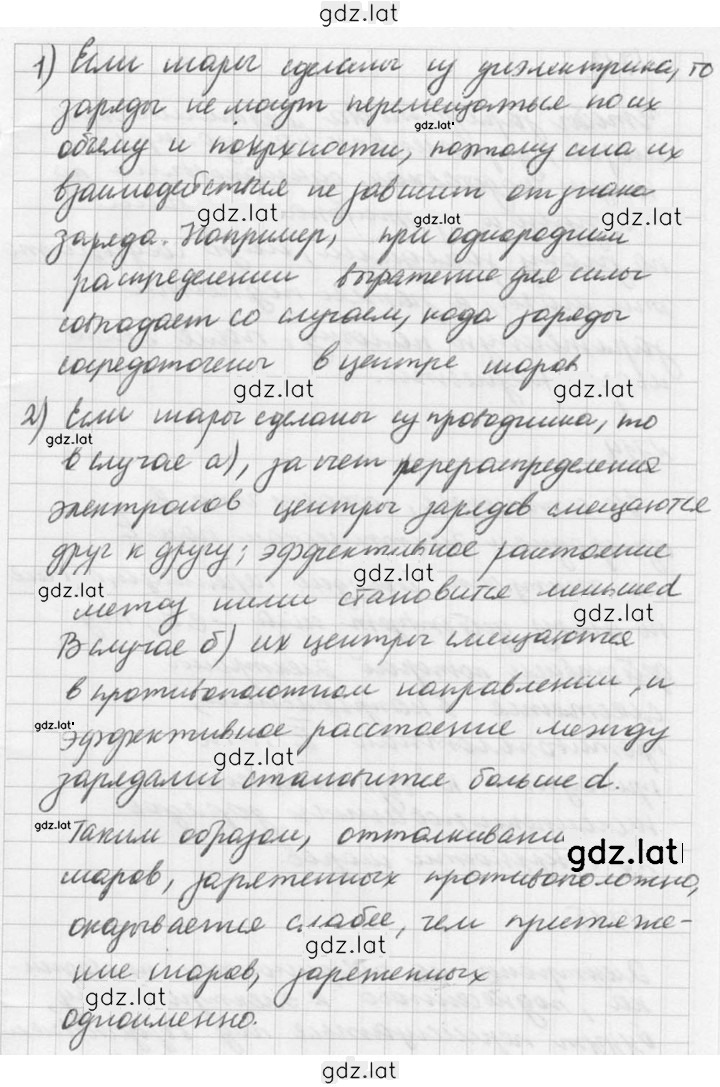 gdz.lat
1) Если шары сделаны из диэлектрика, то
заряды не могут перемещаться по их
gdz.lat
объему и поверхности, поэтому сила их
взаимодействия не зависит от знака
gdz.lat gdz.lat gdz.lat
заряда. Например, при однородном
распределении выражение для силы
совпадает со случаем, когда заряды
сосредоточены в центре шаров
gdz.lat gdz.lat
2) Если шары сделаны из проводника, то
gdz.lat
в случае а), за счет перераспределения
электронов центры зарядов смещаются
друг к другу; эффективное растояние
gdz.lat gdz.lat gdz.lat
между ними становится меньше d
В случае б) их центры смещаются
в противоположном направлении, и
gdz.lat
эффективное расстоение между
gdz.lat
зарядами становится больше d.
gdz.lat
Таким образом, отталкивани
gdz.lat
шаров, заряженных противоположно,
оказывается слабее, чем притяже-
gdz.lat
ние шаров, зареженных
gdz.lat
одноименно.
gdz.lat